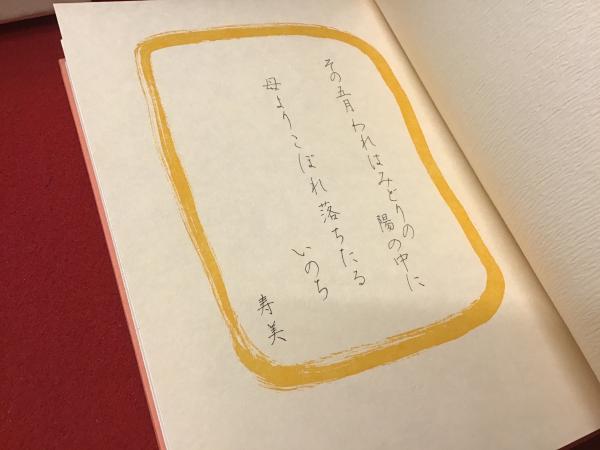 その五月われはみどりの陽の中に
母よりこぼれ落ちたる
いのち
寿美